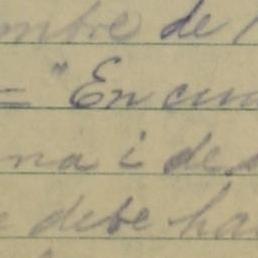 mbre de 1
= "En cua
na i des
e debe ha